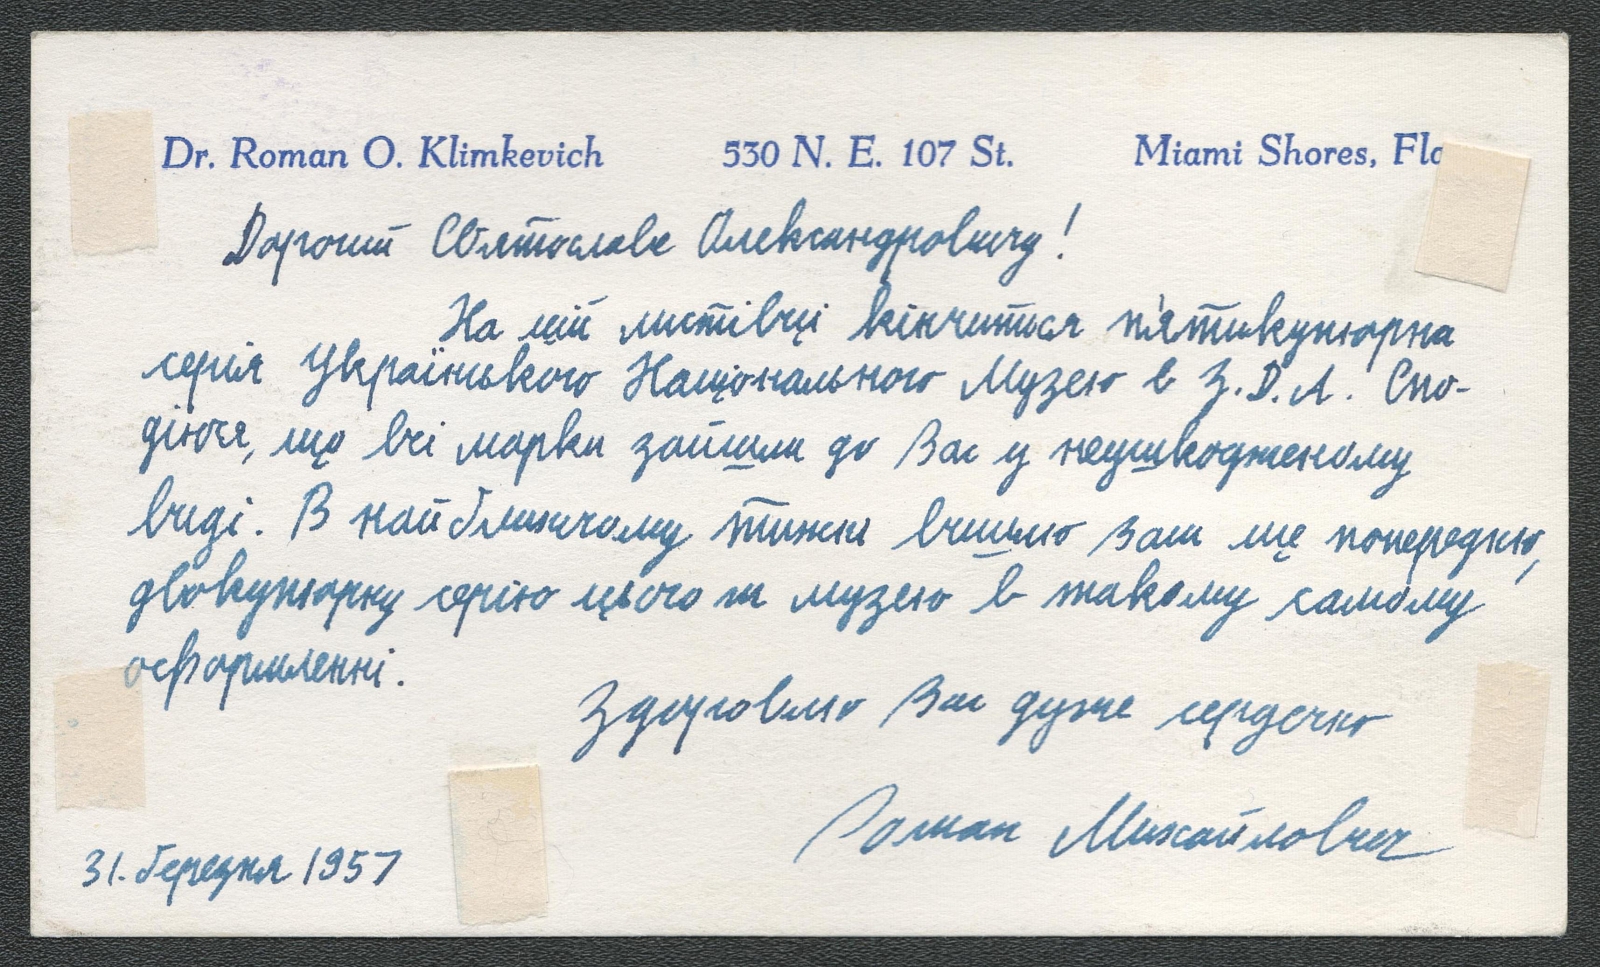 Dr. Roman O. Klimkevich 530 N. E. 107 St. Miami Shores, Flo
Дорогий Святославе Олександровичу!
На цій листівці кінчиться п'ятикупюрна
серія Українського Національного Музею в З.Д.А. Спо-
діюся, що всі марки зайшли до Вас у неушкодженому
виді. В найближчому тижні вишлю Вам ще попередню,
двокупюрну серію цього ж музею в такому самому
оформленні.
Здоровлю Вас дуже сердечно
Роман Михайлович
31. березня 1957